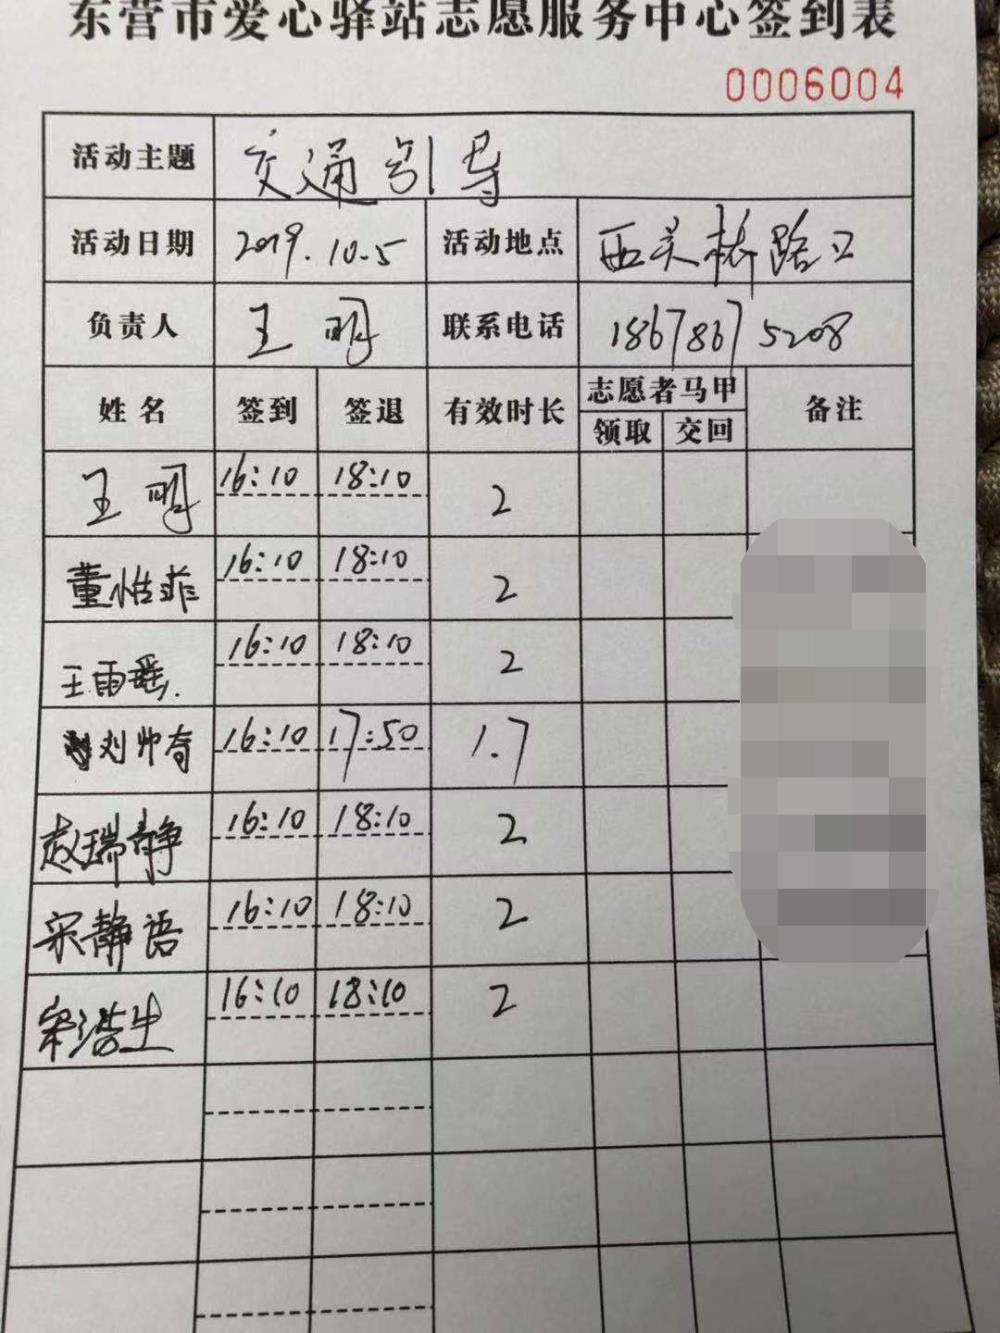 东营市爱心驿站志愿服务中心签到表
0006004
活动主题 交通引导
活动日期 2019.10.5 活动地点 西关桥路口
负责人 王明 联系电话 18678675208
姓名 签到 签退 有效时长 志愿者马甲 领取 交回 备注
王明 16:10 18:10 2
董恺菲 16:10 18:10 2
王雨瑶. 16:10 18:10 2
刘帅奇 16:10 17:50 1.7
赵瑞静 16:10 18:10 2
宋静语 16:10 18:10 2
宋浩生 16:10 18:10 2